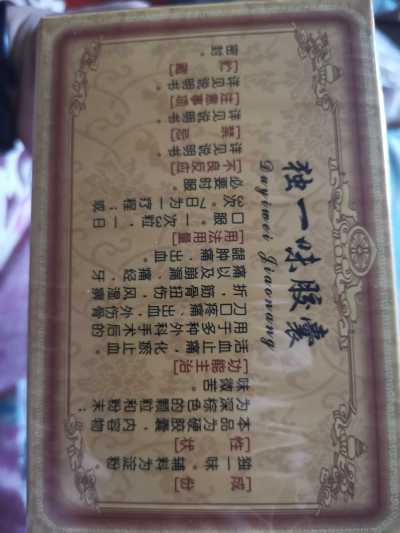 独一味胶囊
Duyiwei Jiaonang
[成份]
独一味。辅料为淀粉
[性状]
本品为硬胶囊，内容物
为深棕色的颗粒和粉末；
味微苦。
[功能主治]
活血止痛，化瘀止血。
用于多种外科手术后的
刀口疼痛、出血，外伤骨
折，筋骨扭伤，风湿痹
痛以及崩漏、痛经、牙
龈肿痛、出血。
[用法用量]
口服。一次3粒，一日
3次。7日为一疗程；或
必要时服。
[不良反应]
详见说明书
[禁忌]
详见说明书
[注意事项]
详见说明书
[贮藏]
密封。